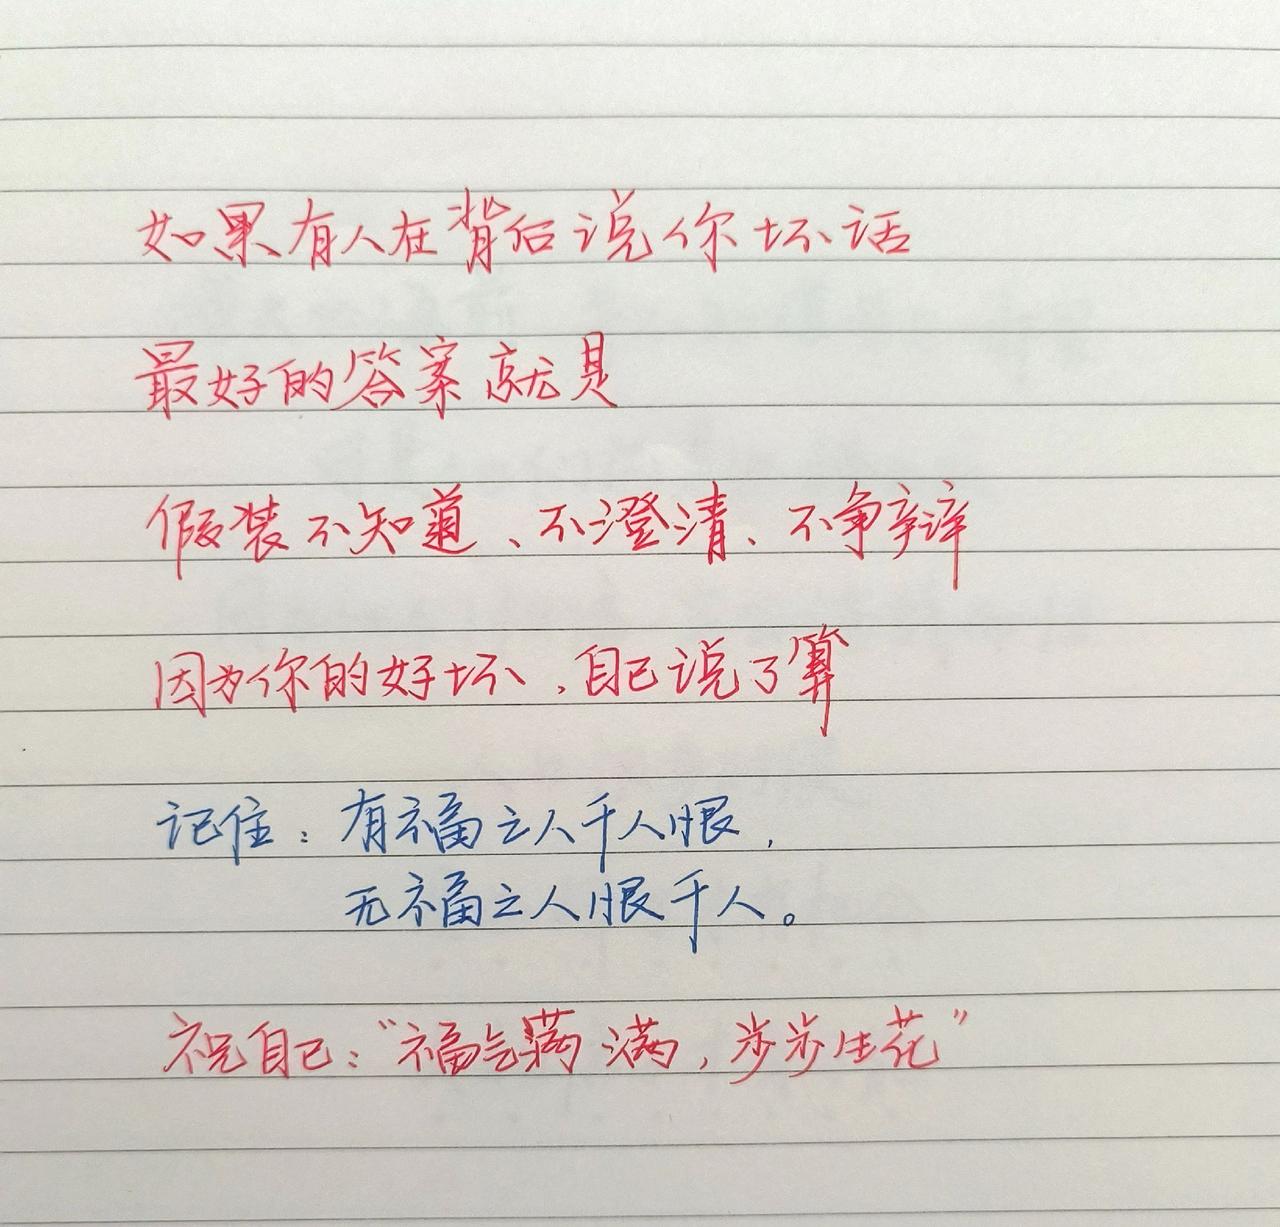 如果有人在背后说你坏话
最好的答案就是
假装不知道、不澄清、不争辩
因为你的好坏，自己说了算
记住：有福之人千人恨，
无福之人恨千人。
祝自己：“福气满满，步步生花”